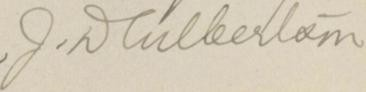 J. D Culbertson